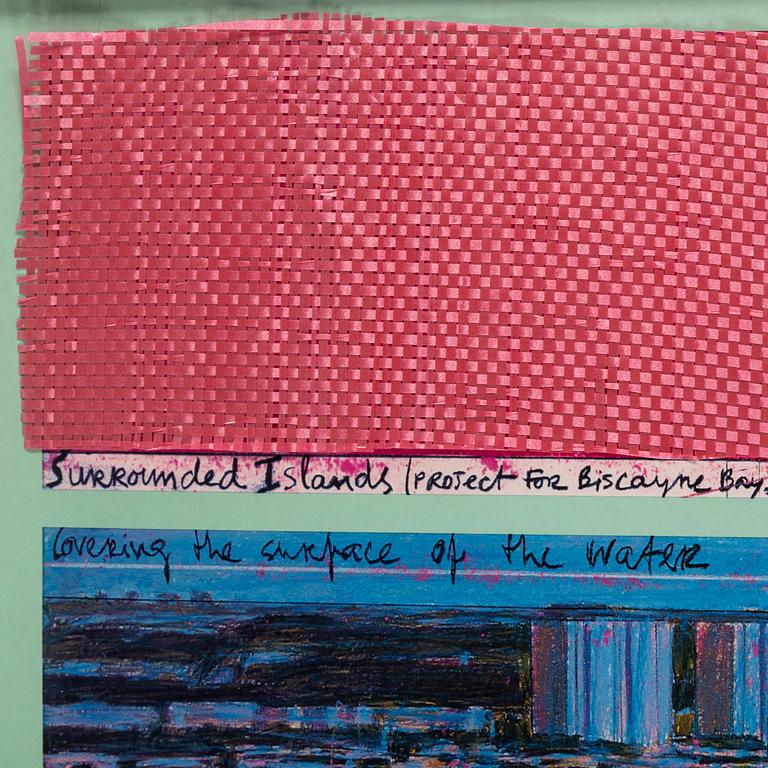 Surrounded Islands (project for Biscayne Bay,
Covering the surface of the water